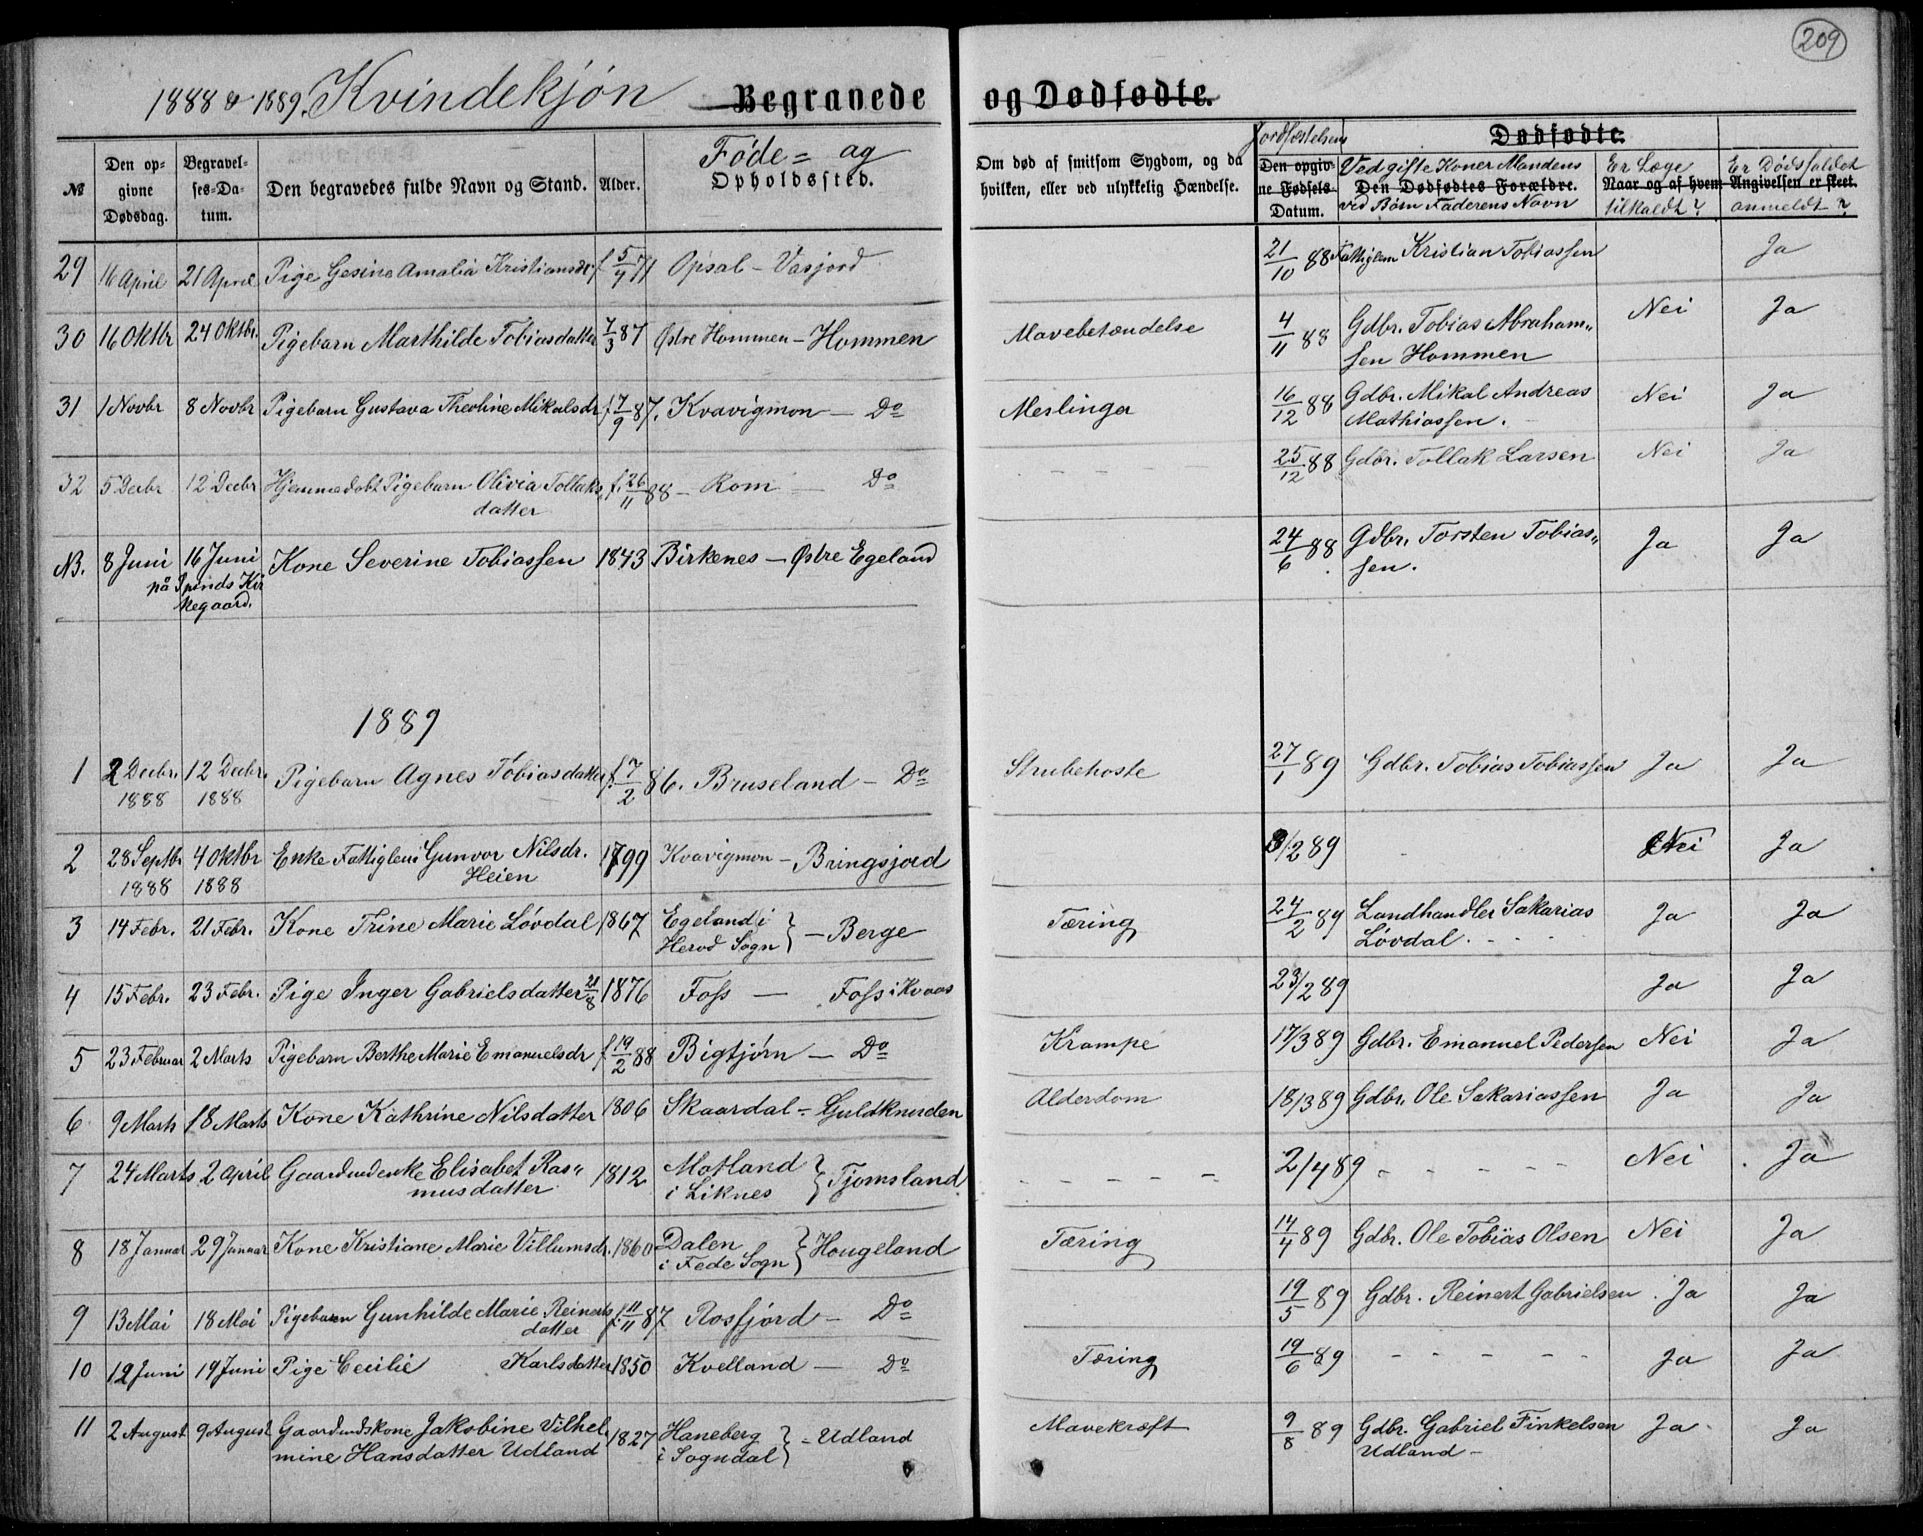 209
1888 & 1889. Kvindekjøn Begravede og Dødfødte.
№ Den opgivne Dødsdag. Begravelses-Datum. Den begravedes fulde Navn og Stand. Alder. Føde- og Opholdssted. Om død af smitsom Sygdom, og da hvilken, eller ved ulykkelig Hændelse. Jordfæstelsens Den opgivne Fødsels-Datum. Dødfødte. Ved gifte Koner Mandens Den Dødfødtes Forældre. ved Børn Faderens Navn Er Læge Naar og af hvem tilkaldt? Er Dødsfaldet Angivelsen er skeet. anmeldt?
29 16 April 21 April Pige Gesine Amalia Kristiansdr f 5/4 71 Opsal - Vasjord 21/10 88 Fattiglem Kristian Tobiassen Ja
30 16 Oktbr 24 Oktbr. Pigebarn Marthilde Tobiasdatter 7/3 87 Østre Hommen - Hommen Mavebetændelse 4/11 88 Gdbr. Tobias Abraham„ Nei Ja
sen Hommen
31 1 Novbr 8 Novbr Pigebarn Gustava Theoline Mikalsdr f 7/9 87. Kvavigmon - Do Meslinger 16/12 88 Gdbr. Mikal Andreas Nei Ja
Mathiassen.
32 5 Decbr 12 Decbr Hjemmedøbt Pigebarn Olivia Tollaks„ f. 26/11 88 - Rom - Do - - - - 25/12 88 Gdbr. Tollak Larsen Nei Ja
datter
NB. 8 Juni 16 Juni Kone Severine Tobiassen 1843 Birkenes - Østre Egeland 24/6 88 Gdbr. Torsten Tobias„ Ja Ja
på Spinds Kir sen.
kegaard.
1889
1 2 Decbr. 12 Decbr. Pigebarn Agnes Tobiasdatter f. 7/2 86. Bruseland - Do Strubehoste 27/1 89 Gdbr. Tobias Tobiassen Ja Ja
1888 1888
2 28 Septbr 4 Oktbr Enke Fattiglem Gunvor Nilsdr. 1799 Kvavigmon - Bringsjord 3/2 89 - Nei Ja
1888 1888 Heien
3 14 Febr. 21 Febr. Kone Trine Marie Løvdal 1867 Egeland i } - Berge Tæring 24/2 89 Landhandler Sakarias Ja Ja
Herod Sogn Løvdal. - - -
4 15 Febr. 23 Febr. Pige Inger Gabrielsdatter 21/8 1876 Foss - Foss i Kvaas 23/2 89 Ja Ja
5 23 Februar 2 Marts Pigebarn Berthe Marie Emanuelsdr f 19/2 88 Bigtjørn - Do Krampe 17/3 89 Gdbr. Emanuel Pedersen Nei Ja
6 9 Marts 18 Marts Kone Kathrine Nilsdatter 1806 Skaardal - Guldknuden Alderdom 18/3 89 Gdbr. Ole Sakariassen Ja Ja
7 24 Marts 2 April Gaardmdenke Elisabet Ras„ 1812 Motland } Tjomsland - - - - - 2/4 89 - - - - - Nei Ja
musdatter i Liknes
8 18 Januar 29 Januar Kone Kristiane Marie Villumsdr. 1860 Dalen } Hougeland Tæring 14/4 89 Gdbr. Ole Tobias Olsen Nei Ja
i Fede Sogn
9 13 Mai 18 Mai Pigebarn Gunhilde Marie Reinerts f. 11/11 87 Rosfjord - Do 19/5 89 Gdbr. Reinert Gabrielsen Ja Ja
datter
10 12 Juni 19 Juni Pige Cecilie Karlsdatter 1850 Kvelland - Do Tæring 19/6 89 - - - - - Ja Ja
11 2 August 9 August Gaardmdskone Jakobine Vilhel„ 1827 Haneberg } - Udland Mavekræft 9/8 89 Gdbr. Gabriel Finkelsen Ja Ja
mine Hansdatter Udland i Sogndal Udland -